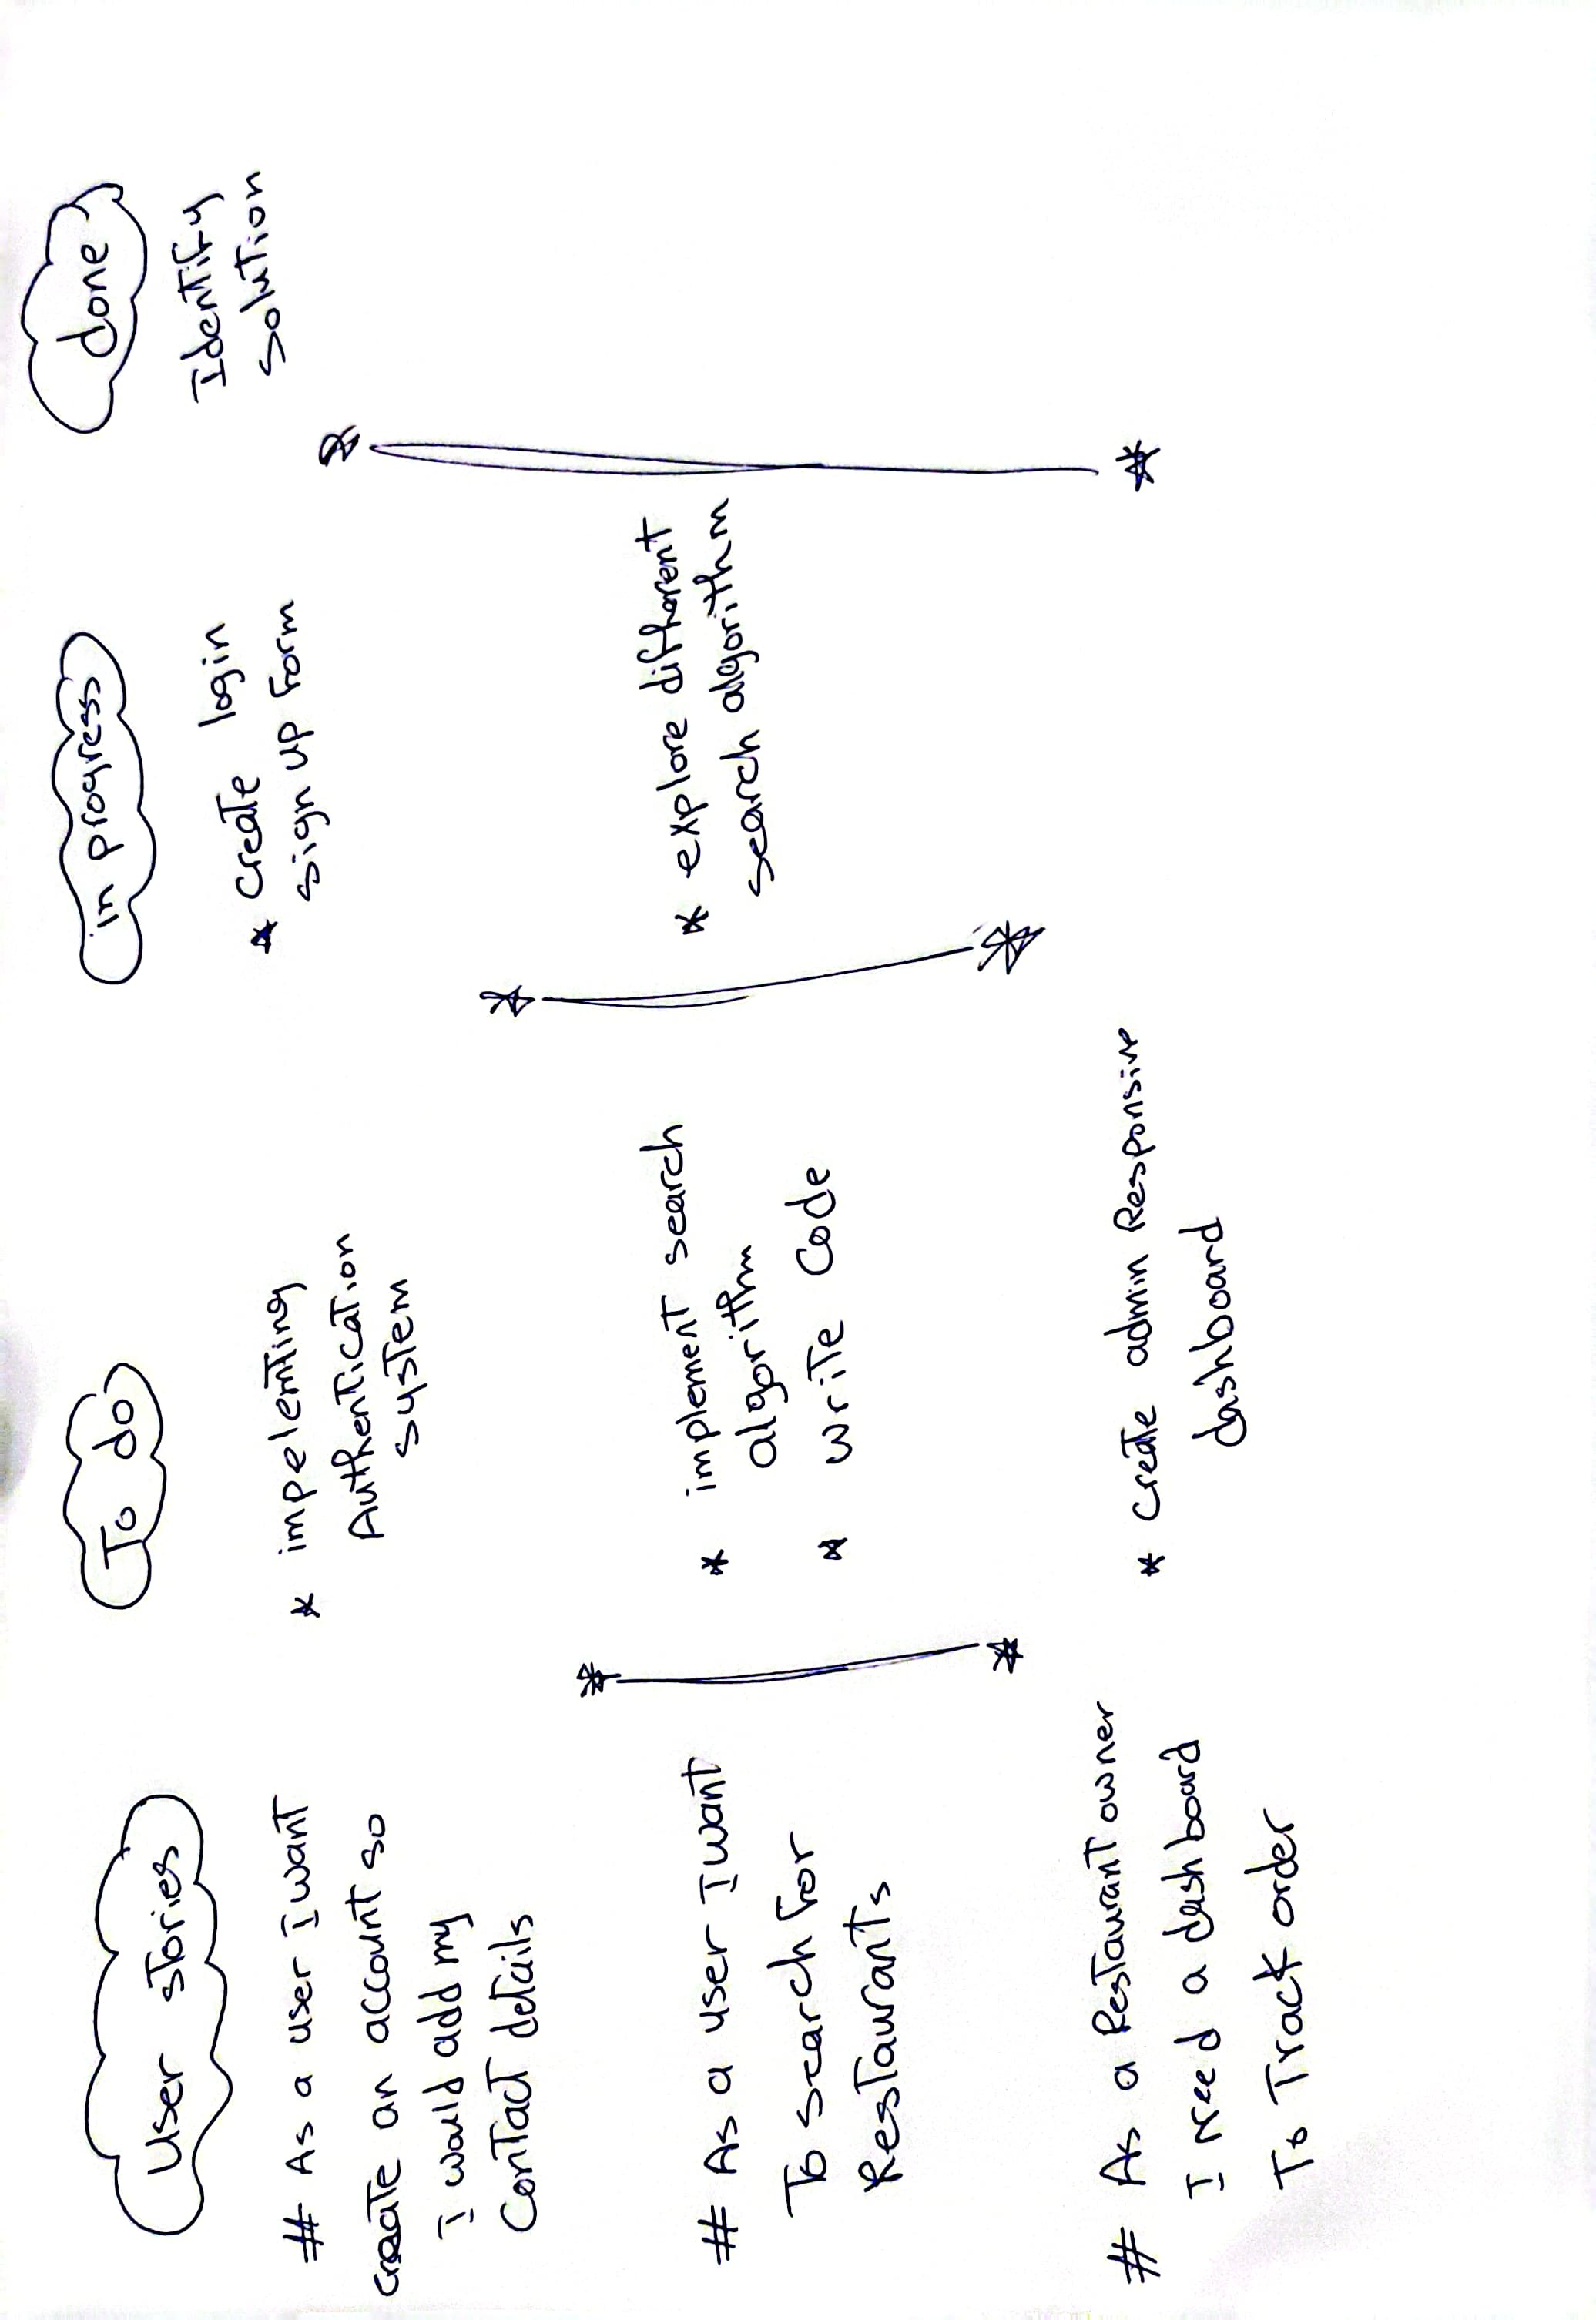 User stories
# As a user I want
create an account so
I would add my
Contact details
# As a user I want
To search for
Restaurants
# As a Restaurant owner
I need a dashboard
To Track order
To do
* impelemting
Authentication
system
* implement search
algorithm
* write Code
* Create admin Responsive
dashboard
in progress
* Create login
sign up form
* explore different
search algorithm
done
Identify
solution